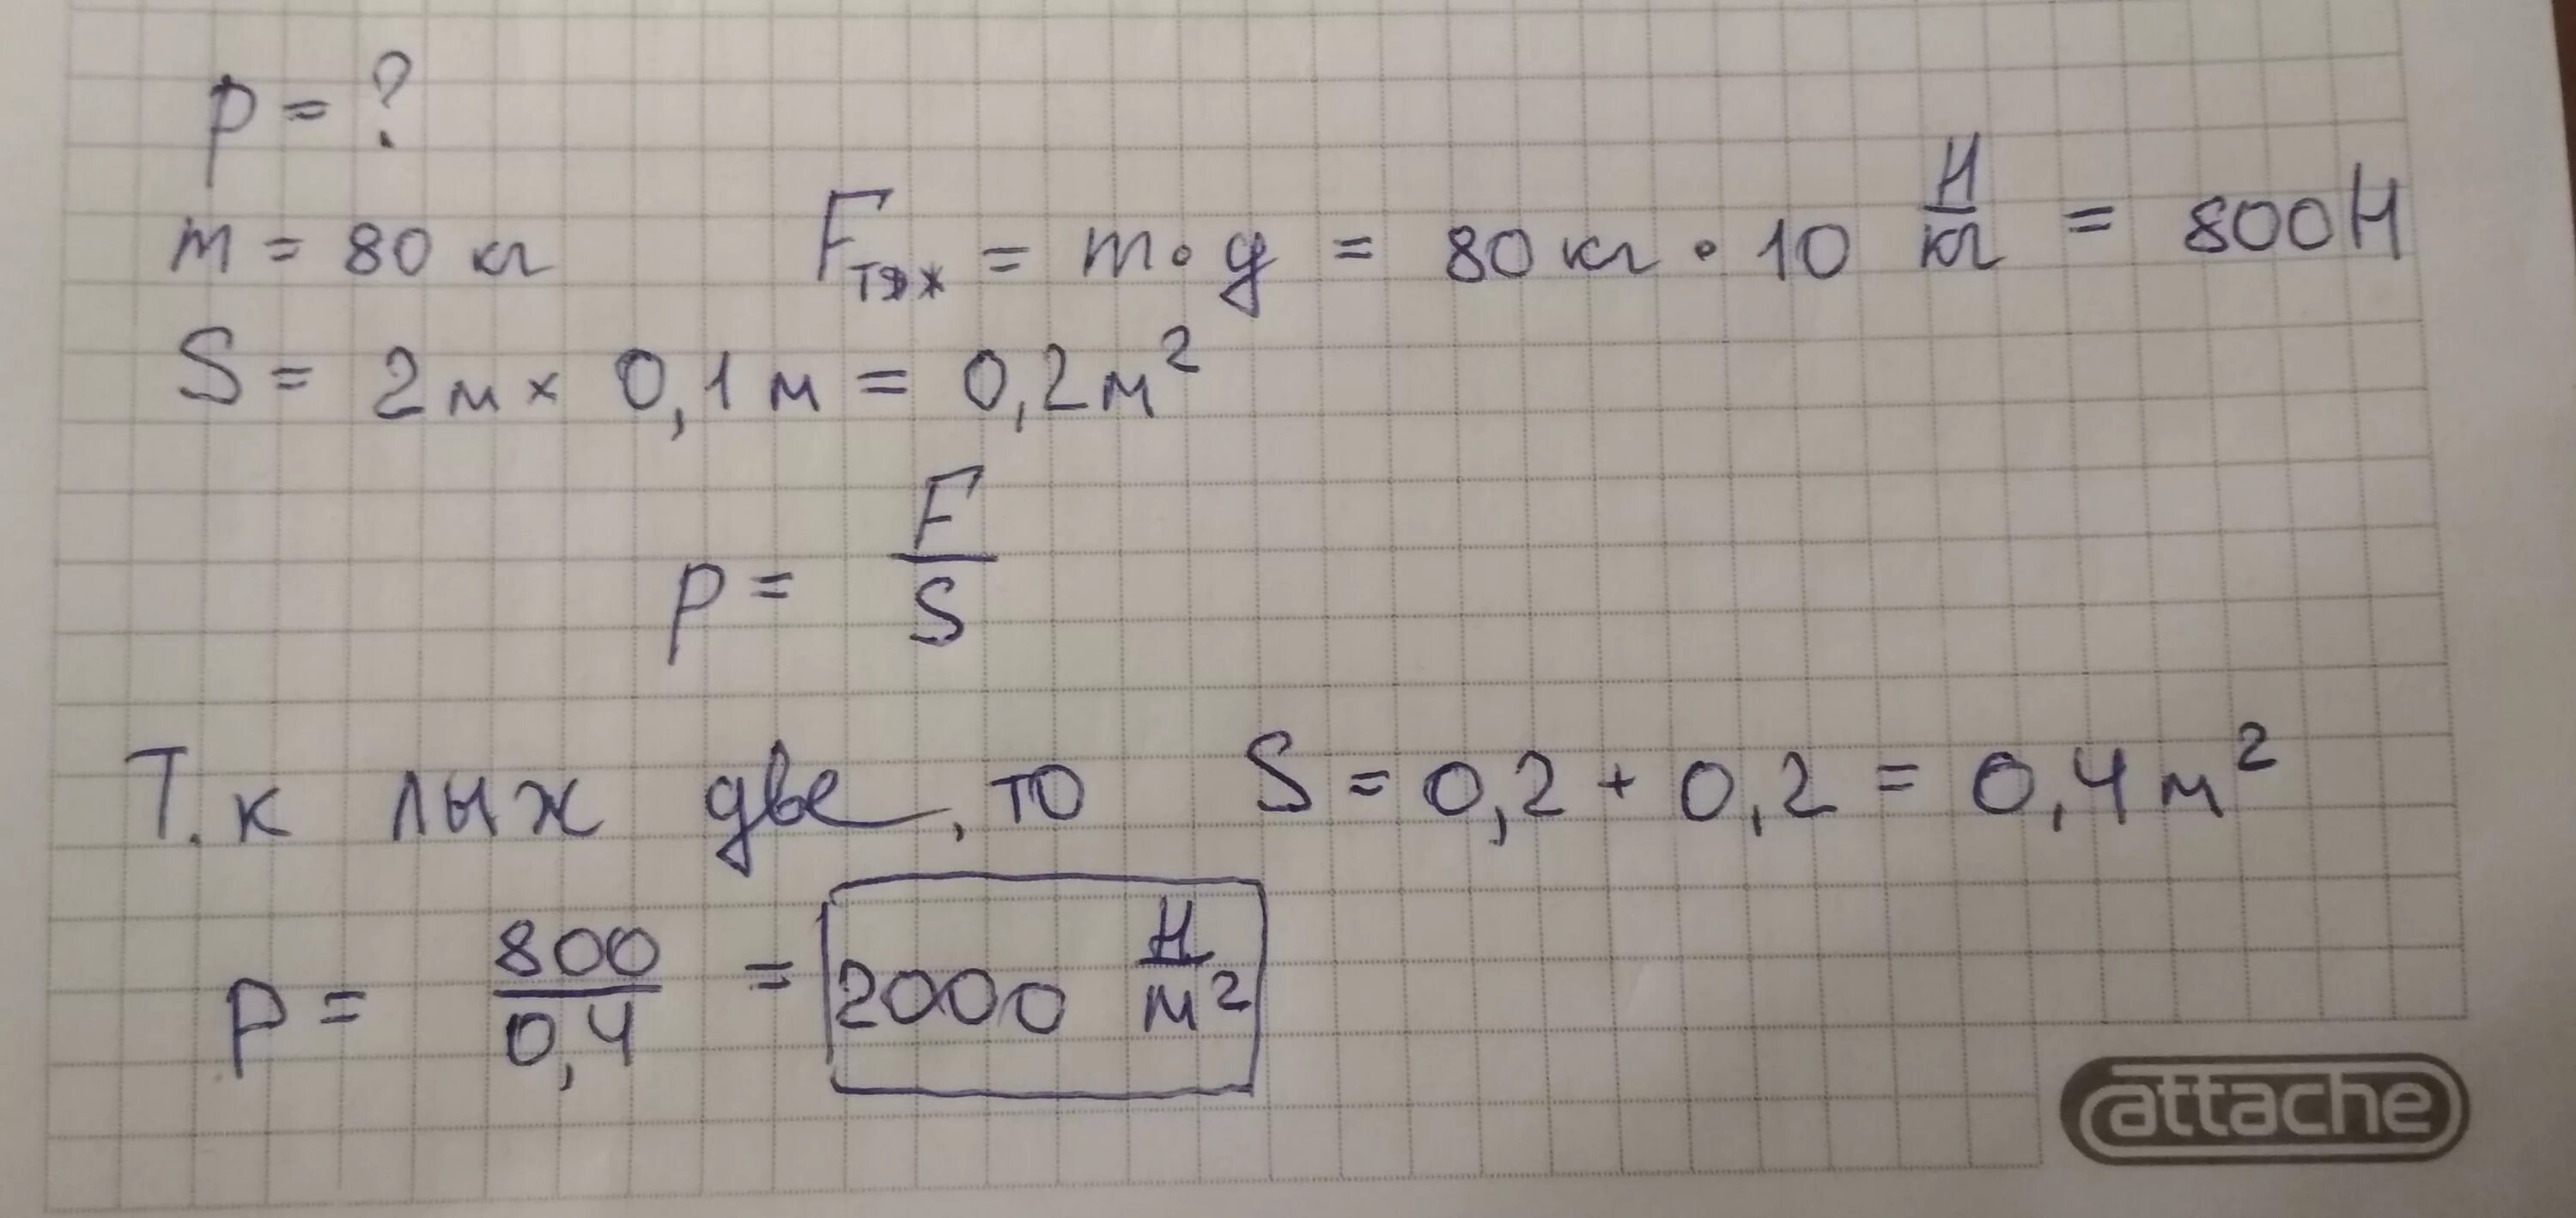 p = ?
m = 80 кг    Fтяж = m • g = 80 кг • 10 Н/кг = 800 Н
S = 2 м × 0,1 м = 0,2 м²
p = F/S
Т.к лыж две, то S = 0,2 + 0,2 = 0,4 м²
p = 800/0,4 = 2000 Н/м²
attache